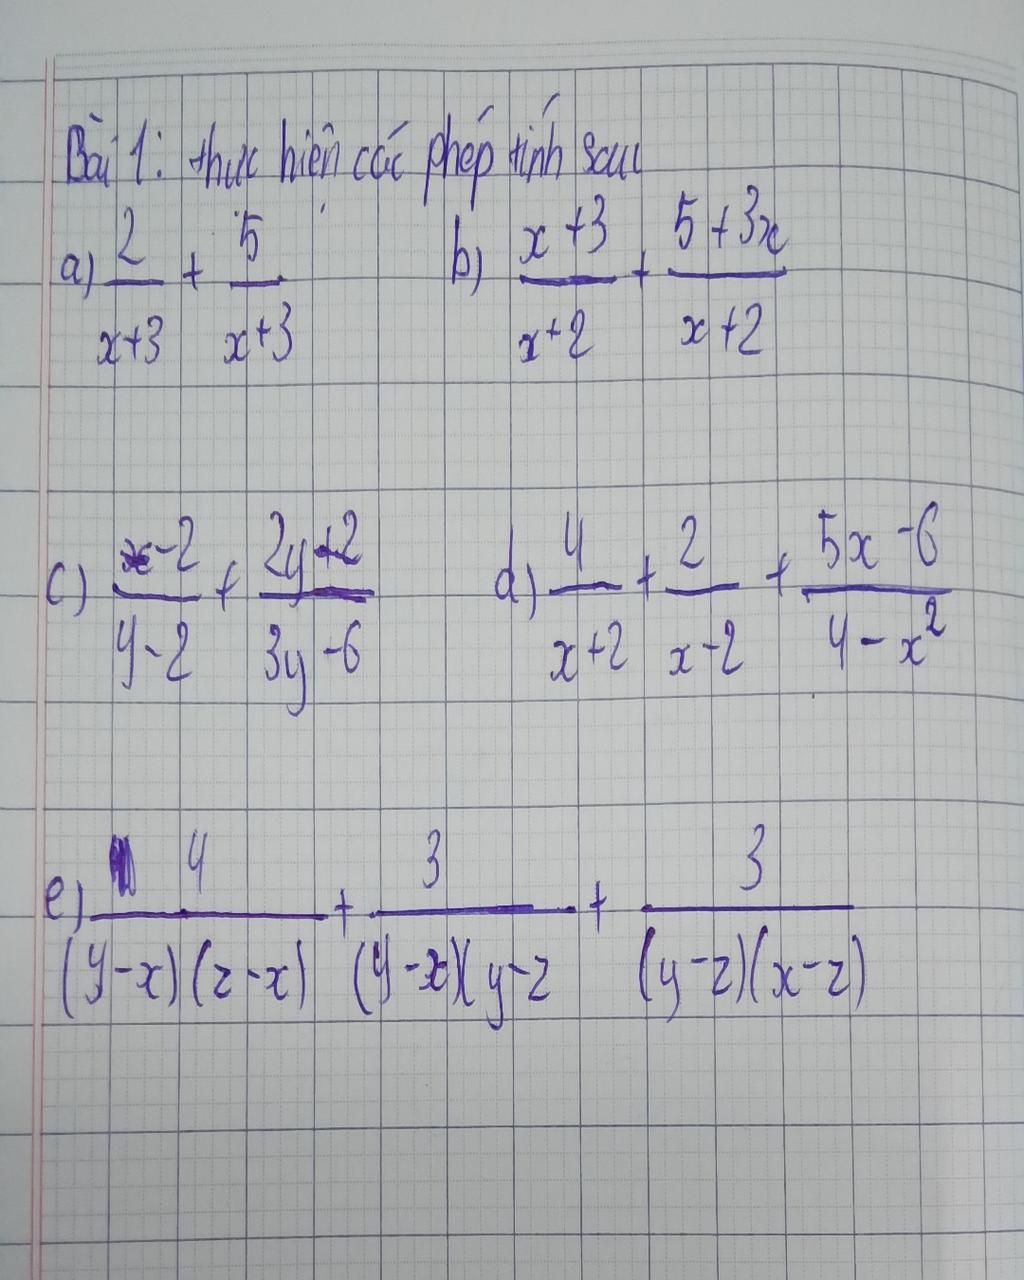 Bài 1: thực hiện các phép tính sau
a) 2/(x+3) + 5/(x+3) b) (x+3)/(x+2) + (5+3x)/(x+2)
c) (x-2)/(y-2) + (2y+2)/(3y-6) d) 4/(x+2) + 2/(x-2) + (5x-6)/(4-x²)
e) 4/((y-x)(z-x)) + 3/((y-x)(y-z + 3/((y-z)(x-z))